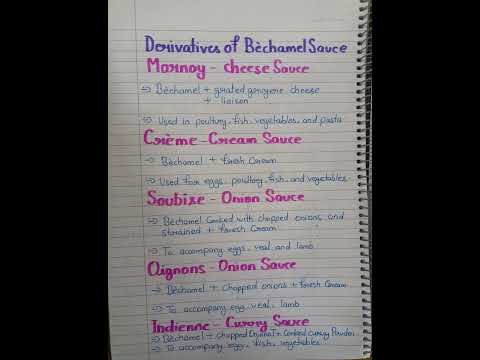 Derivatives of Bèchamel Sauce
Mornay - cheese Sauce
⇒ Bèchamel + grated gruyere cheese
+ liaison
⇒ Used in poultry, fish, vegetables, and pasta
Crème - Cream Sauce
⇒ Bèchamel + fresh cream
⇒ Used for eggs, poultry, fish, and vegetables.
Soubize - Onion Sauce
⇒ Bèchamel Cooked with chopped onions and
strained + fresh Cream
⇒ To accompany eggs, veal and lamb
Oignons - Onion Sauce
⇒ Bèchamel + Chopped onions + fresh Cream
⇒ To accompany egg, veal, lamb
Indienne - Curry Sauce
⇒ Bèchamel + chopped + Cooked curry Powder
⇒ To accompany egg, fish, vegetables